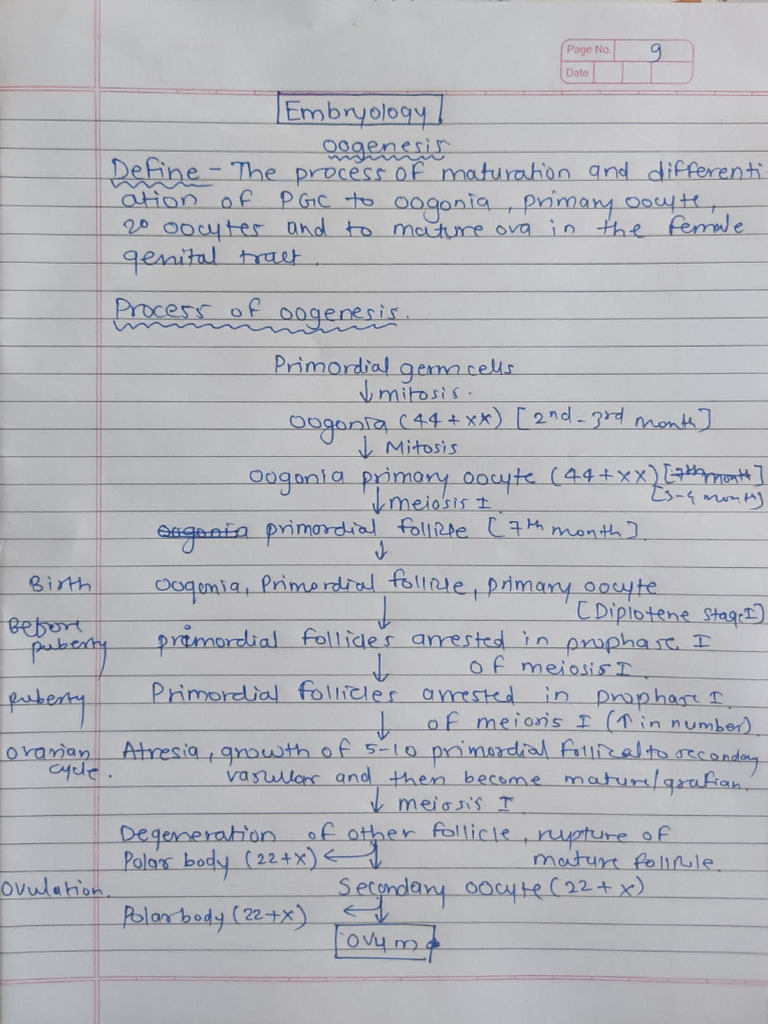 Page No. 9
Date
Embryology
oogenesis
Define - The process of maturation and differenti-
ation of PGC to oogonia, primary oocyte,
2° oocytes and to mature ova in the female
genital tract.
Process of oogenesis.
Primordial germ cells
↓ mitosis.
oogonia (44+xx) [2nd - 3rd month]
↓ Mitosis
oogonia primary oocyte (44+xx) [7th month]
[3-4 month]
↓ meiosis I
oogonia primordial follicle [7th month].
↓
Birth oogonia, Primordial follicle, primary oocyte
↓ [Diplotene stage I]
Before puberty primordial follicles arrested in prophase I
↓ of meiosis I.
puberty Primordial follicles arrested in prophase I
↓ of meiosis I (↑ in number).
ovarian cycle. Atresia, growth of 5-10 primordial follical to seconday
and then become mature/grafian.
↓ meiosis I
Degeneration of other follicle, rupture of
Polar body (22+x) ← ↓ mature follicle.
ovulation. Secondary oocyte (22+x)
Polar body (22+x) ← ↓
ovum